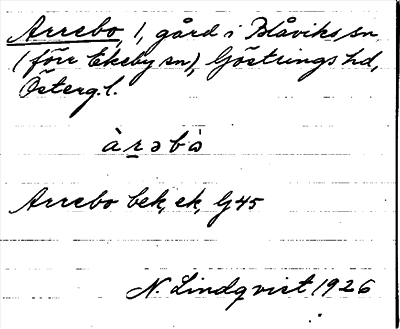 Arrebo, 1, gård i Blåviks sn,
(förr Ekeby sn), Göstrings hd,
Österg.l.
àrəbò
Arrebo bek, ek, G45
N. Lindqvist 1926